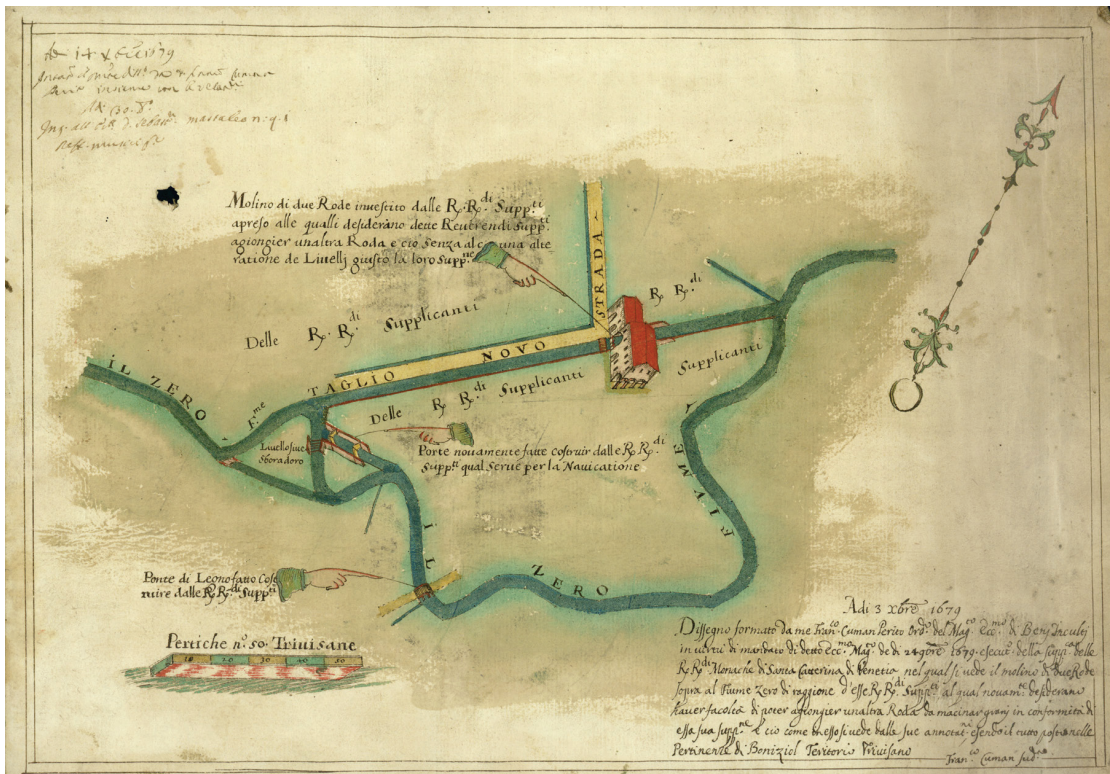 Molino di due Rode inuestito dalle RR.di Supp.ti
apreso alle qualli desiderano dette Reuerendi Supp.ti
agiongier unaltra Roda e ciò senza alcuna alte
ratione de Liuellj giusto la loro Supp.ne
STRADA
RR.di
Delle RR.di Supplicanti
TAGLIO NOVO
Supplicanti
IL ZERO
F.me
Delle RR.di Supplicanti
Sboradoro
Porte nouamente fatte costruir dalle RR.di
Supp.ti qual serue per la Nauicatione
IL ZERO FIVME
Ponte di Legno fatto Cos
truire dalle RR.di Supp.ti
Pertiche n.o 50 Triuisane
10 20 30 40 50
Adi 3 xbre 1679
Dissegno formato da me Fran.co Cuman Perito Ord.o del Mag.to Ecc.mo di Beni Inculti
in uirtù di mandato di detto Ecc.mo Mag.to de di 24 9bre 1679
RR.di Monache di Santa Catterina di Venetia nel qual si uede il molino di due Rode
sopra al Fiume Zero di raggione d'esse RR.di Supp.ti al qual nouam.te desiderano
hauer facoltà di poter agiongier unaltra Roda da macinar granj in conformità di
essa sua supp.ne E ciò come il tutto posto nelle
Pertinenze di Boniziol Teritorio Triuisano
Fran.co Cuman